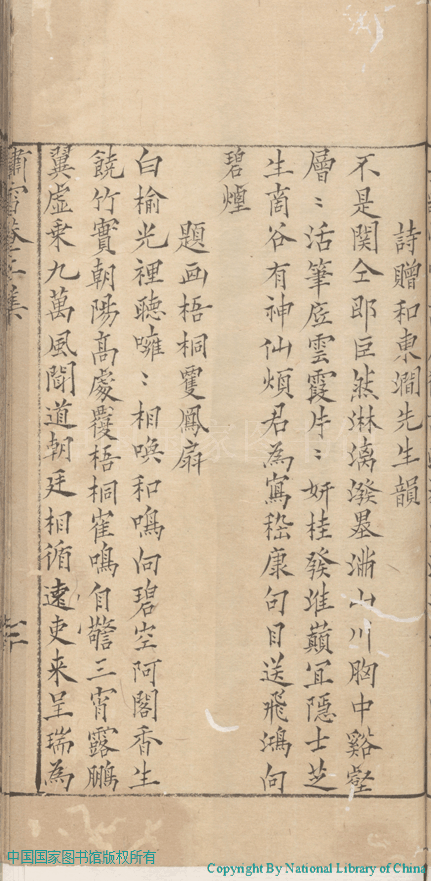 詩贈和東澗先生韻
不是関仝即巨然淋漓潑墨滿山川胸中谿壑
層〻活筆底雲霞片〻妍桂發淮巔宜隱士芝
生商谷有神仙煩君為寫嵇康句目送飛鴻向
碧煙
題画梧桐雙鳳扇
白榆光裡聽噰〻相喚和鳴向碧空阿閣香生
饒竹實朝陽高處覆梧桐寉鳴自警三宵露鵬
翼虛乘九萬風聞道朝廷相循遠吏来呈瑞為
嘯
卷
集
中国国家图书馆版权所有
Copyright By National Library of China